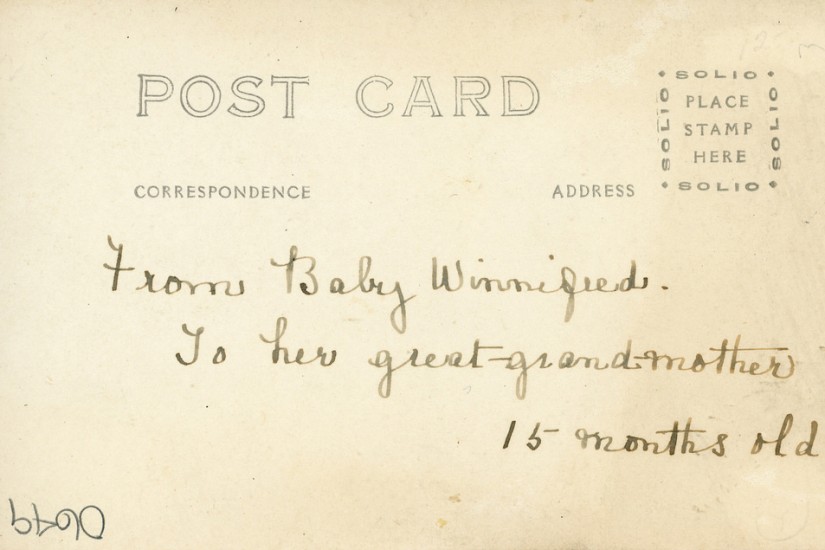 POST CARD
SOLIO
SOLIO
SOLIO
PLACE
STAMP
HERE
SOLIO
CORRESPONDENCE
ADDRESS
From Baby Winnifred.
To her great-grand-mother
15 months old